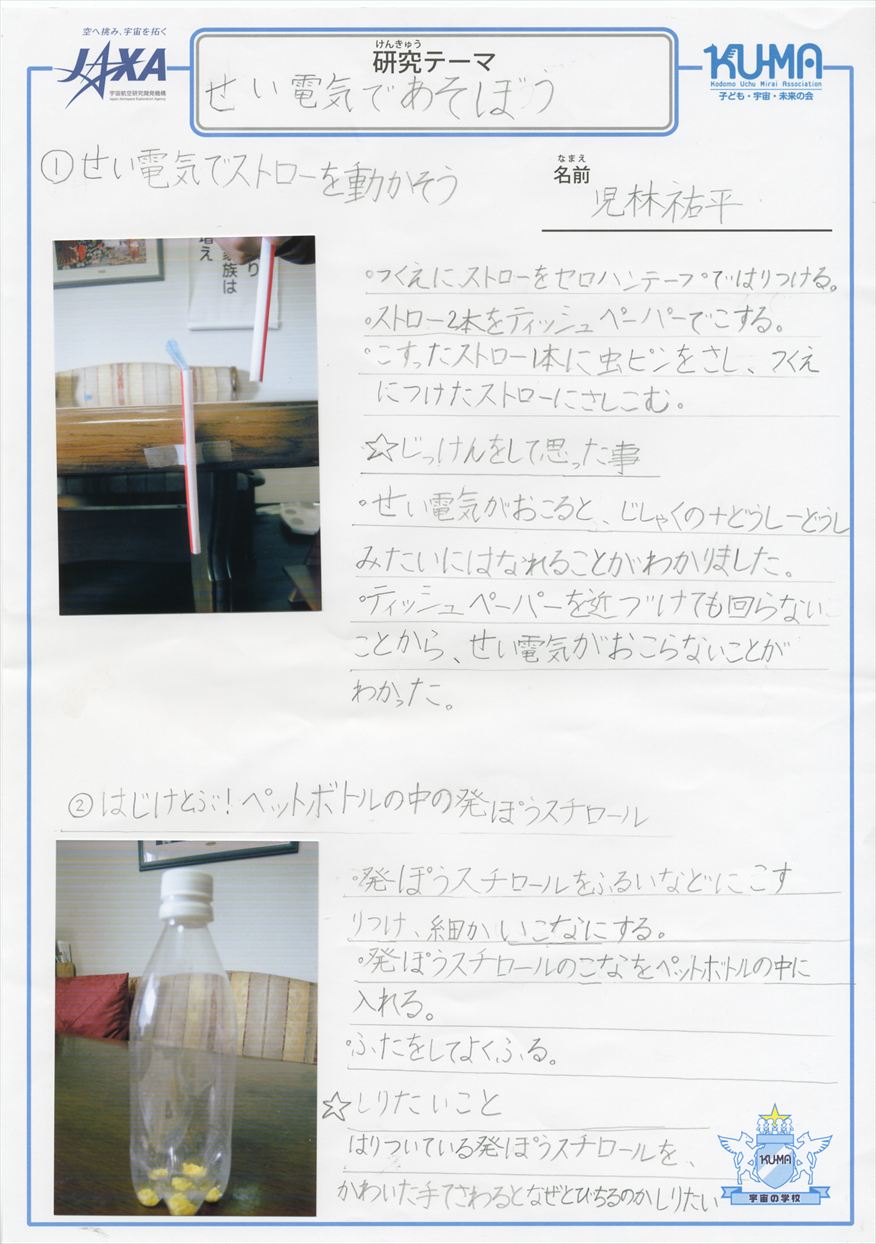 空へ挑み、宇宙を拓く
JAXA
宇宙航空研究開発機構
Japan Aerospace Exploration Agency
けんきゅう
研究テーマ
せい電気であそぼう
KU-MA
Kodomo Uchu Mirai Association
子ども・宇宙・未来の会
①せい電気でストローを動かそう
なまえ
名前
児林祐平
増え
家族は
り
。つくえにストローをセロハンテープではりつける。
。ストロー2本をティッシュペーパーでこする。
。こすったストロー1本に虫ピンをさし、つくえ
につけたストローにさしこむ。
☆じっけんをして思った事
。せい電気がおこると、じしゃくの+どうしーどうし
みたいにはなれることがわかりました。
。ティッシュペーパーを近づけても回らない
ことから、せい電気がおこらないことが
わかった。
②はじけとぶ!ペットボトルの中の発ぽうスチロール
。発ぽうスチロールをふるいなどにこす
りつけ、細かいこなにする。
。発ぽうスチロールのこなをペットボトルの中に
入れる。
。ふたをしてよくふる。
☆しりたいこと
はりついている発ぽうスチロールを、
かわいた手でさわるとなぜとびちるのかしりたい
KU-MA
宇宙の学校